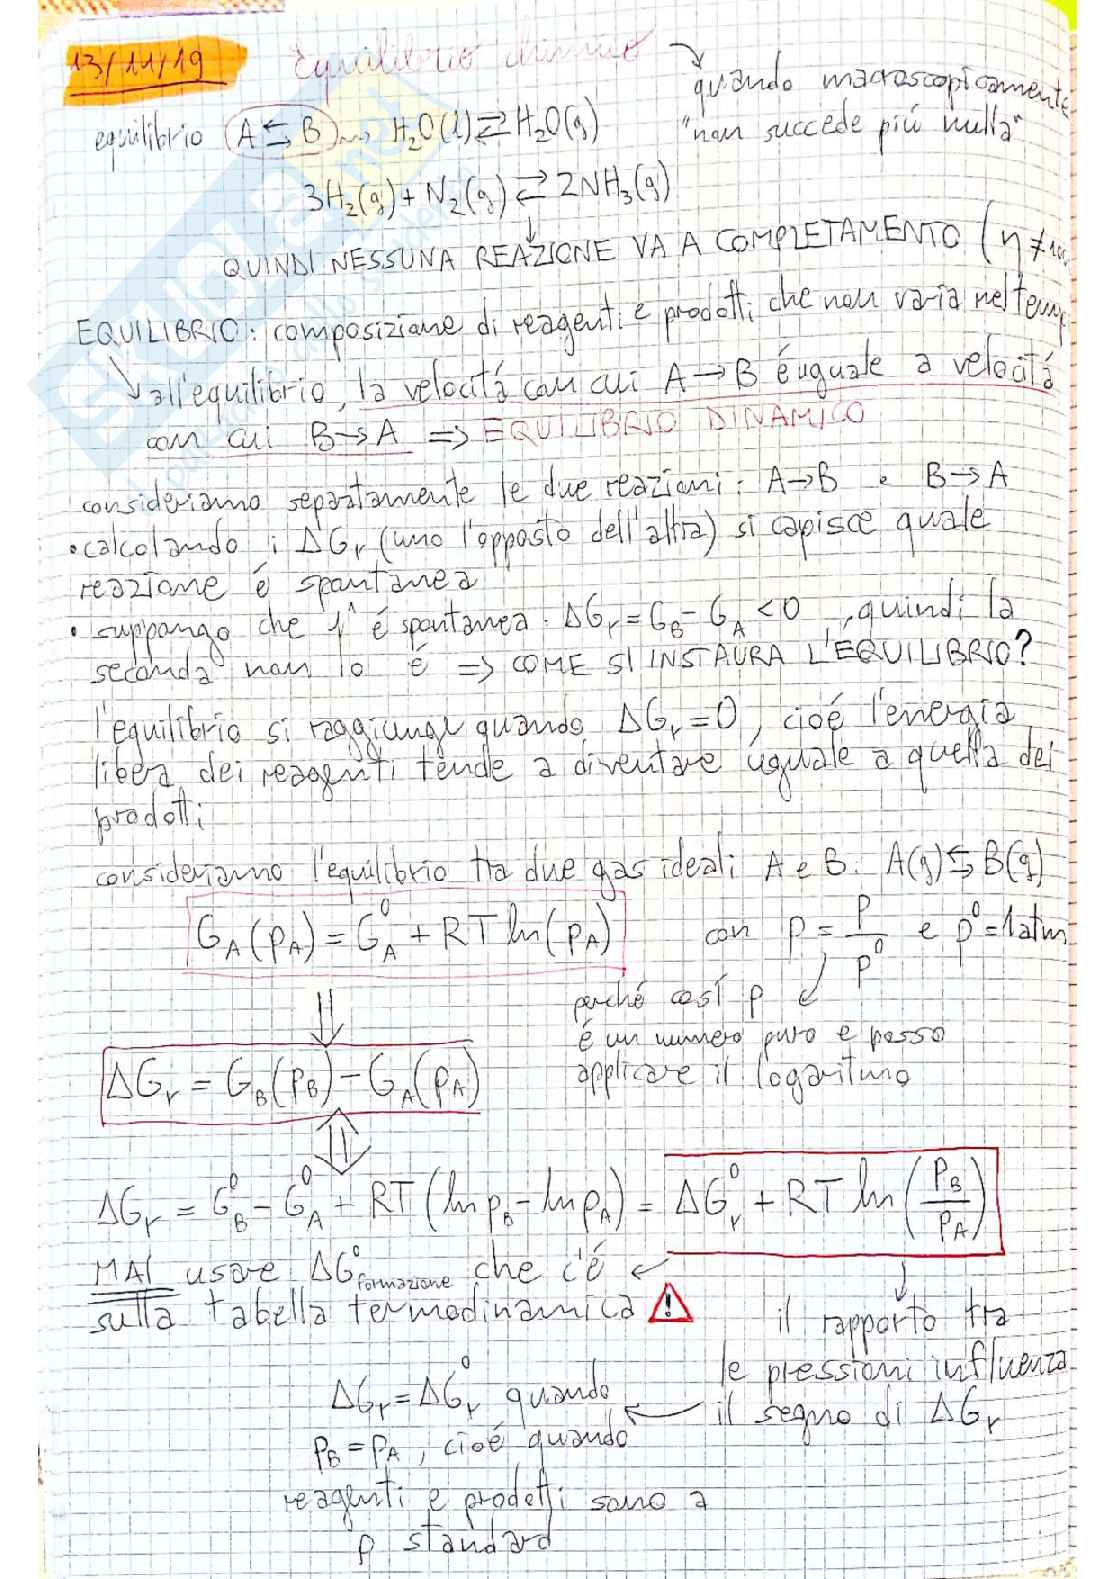 13/11/19 Equilibrio chimico → quando macroscopicamente
"non succede più nulla"
equilibrio A ⇆ B ⇝ H₂O(l) ⇄ H₂O(g)
3H₂(g) + N₂(g) ⇄ 2NH₃(g)
↓
QUINDI NESSUNA REAZIONE VA A COMPLETAMENTO (η ≠
EQUILIBRIO: composizione di reagenti e prodotti che non varia nel temp
↘ all'equilibrio, la velocitá con cui A → B é uguale a velocitá
con cui B → A => EQUILIBRIO DINAMICO
consideriamo separatamente le due reazioni: A → B e B → A
• calcolando i ΔGr (uno l'opposto dell'altra) si capisce quale
reazione é spontanea
• suppongo che 1ᵃ é spontanea: ΔGr = G_B - G_A < 0, quindi la
seconda non lo é => COME SI INSTAURA L'EQUILIBRIO?
l'equilibrio si raggiunge quando ΔGr = 0, cioé l'energia
libera dei reagenti tende a diventare uguale a quella dei
prodotti
consideriamo l'equilibrio tra due gas ideali A e B: A(g) ⇆ B(g)
G_A(p_A) = G_A⁰ + RT ln(p_A) con p = P/p⁰ e p⁰ = 1atm
perché cosí p
é un numero puro e posso
applicare il logaritmo
⇓
ΔGr = G_B(p_B) - G_A(p_A)
⇕
ΔGr = G_B⁰ - G_A⁰ + RT (ln p_B - ln p_A) = ΔGr⁰ + RT ln(p_B/p_A)
MAI usare ΔG⁰formazione che c'é ↙
sulla tabella termodinamica ⚠
il rapporto tra
le pressioni influenza
il segno di ΔGr
ΔGr = ΔGr⁰ quando ←
p_B = p_A, cioé quando
reagenti e prodotti sono a
p standard
SKUOLA.net